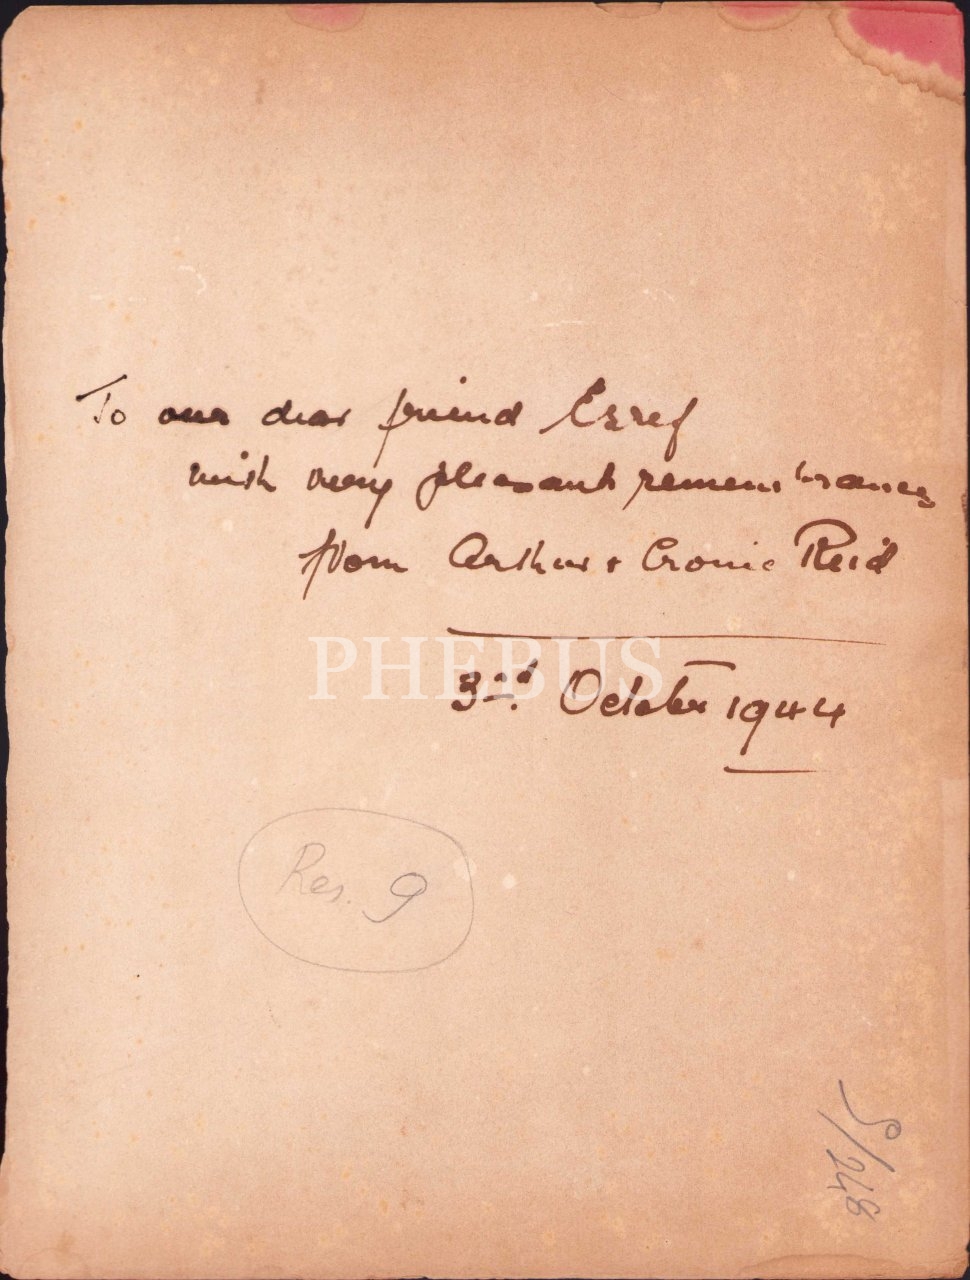 To our dear friend Esref
with very pleasant remembrances
from Arthur + Reid
PHEBUS
3rd. October 1944
Res. 9
5/248